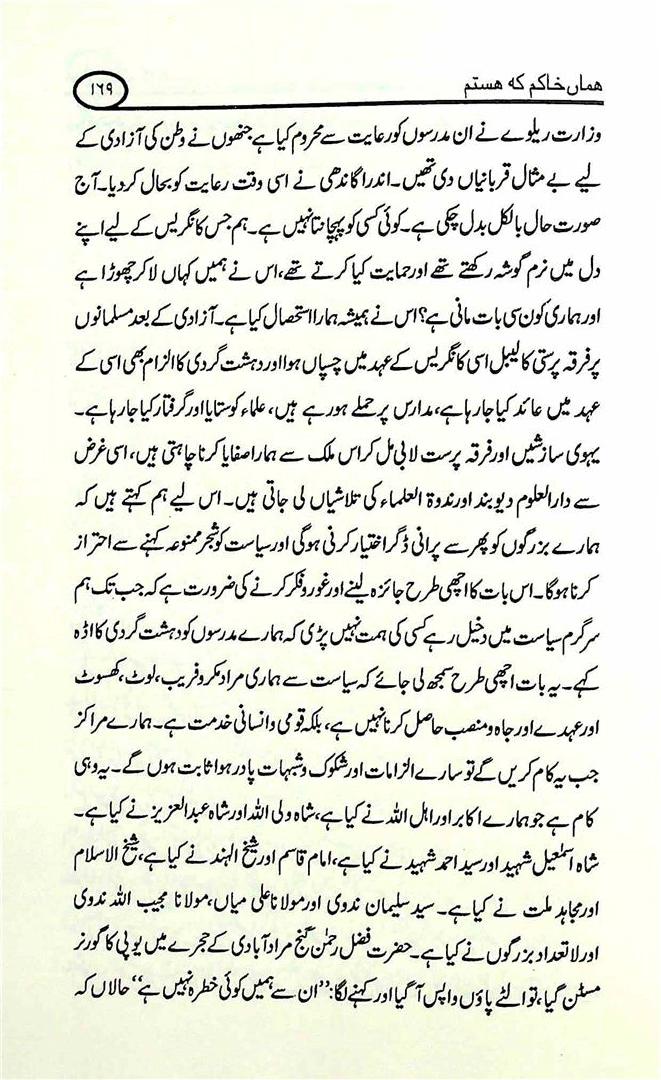 ھماں خاکم کہ ھستم
۱۶۹
وزارت ریلوے نے ان مدرسوں کو رعایت سے محروم کیا ہے جنھوں نے وطن کی آزادی کے
لیے بے مثال قربانیاں دی تھیں۔ اندرا گاندھی نے اسی وقت رعایت کو بحال کردیا۔ آج
صورت حال بالکل بدل چکی ہے۔ کوئی کسی کو پہچانتا نہیں ہے۔ ہم جس کانگریس کے لیے اپنے
دل میں نرم گوشہ رکھتے تھے اور حمایت کیا کرتے تھے، اس نے ہمیں کہاں لا کر چھوڑا ہے
اور ہماری کون سی بات مانی ہے؟ اس نے ہمیشہ ہمارا استحصال کیا ہے۔ آزادی کے بعد مسلمانوں
پر فرقہ پرستی کا لیبل اسی کانگریس کے عہد میں چسپاں ہوا اور دہشت گردی کا الزام بھی اسی کے
عہد میں عائد کیا جارہا ہے، مدارس پر حملے ہورہے ہیں، علماء کو ستایا اور گرفتار کیا جارہا ہے۔
یہودی سازشیں اور فرقہ پرست لابی مل کر اس ملک سے ہمارا صفایا کرنا چاہتی ہیں، اسی غرض
سے دارالعلوم دیوبند اور ندوۃ العلماء کی تلاشیاں لی جاتی ہیں۔ اس لیے ہم کہتے ہیں کہ
ہمارے بزرگوں کو پھر سے پرانی ڈگر اختیار کرنی ہوگی اور سیاست کو شجر ممنوعہ کہنے سے احتراز
کرنا ہوگا۔ اس بات کا اچھی طرح جائزہ لینے اور غور و فکر کرنے کی ضرورت ہے کہ جب تک ہم
سرگرم سیاست میں دخیل رہے کسی کی ہمت نہیں پڑی کہ ہمارے مدرسوں کو دہشت گردی کا اڈہ
کہے۔ یہ بات اچھی طرح سمجھ لی جائے کہ سیاست سے ہماری مراد مکر و فریب، لوٹ، کھسوٹ
اور عہدے اور جاہ و منصب حاصل کرنا نہیں ہے، بلکہ قومی و انسانی خدمت ہے۔ ہمارے مراکز
جب یہ کام کریں گے تو سارے الزامات اور شکوک و شبہات پادر ہوا ثابت ہوں گے۔ یہ وہی
کام ہے جو ہمارے اکابر اور اہل اللہ نے کیا ہے، شاہ ولی اللہ اور شاہ عبدالعزیز نے کیا ہے۔
شاہ اسمٰعیل شہید اور سید احمد شہید نے کیا ہے، امام قاسم اور شیخ الہند نے کیا ہے، شیخ الاسلام
اور مجاہد ملت نے کیا ہے۔ سید سلیمان ندوی اور مولانا علی میاں، مولانا مجیب اللہ ندوی
اور لاتعداد بزرگوں نے کیا ہے۔ حضرت فضل رحمٰن گنج مرادآبادی کے حجرے میں یوپی کا گورنر
مسٹن گیا، تو الٹے پاؤں واپس آ گیا اور کہنے لگا: ”ان سے ہمیں کوئی خطرہ نہیں ہے“ حالاں کہ